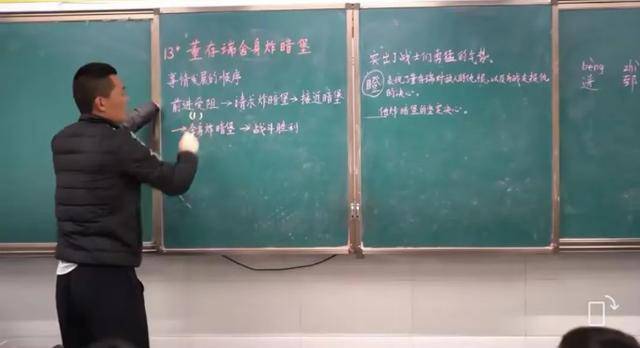 13* 董存瑞舍身炸暗堡
事情发展的顺序
前进受阻→请求炸暗堡→接近暗堡
( )
→舍身炸暗堡→战斗胜利
突出了战士们勇猛的气势。
表现了董存瑞对敌人的仇恨，以及
的决心。
他炸暗堡的坚定决心。
bèng zhì
迸 郅